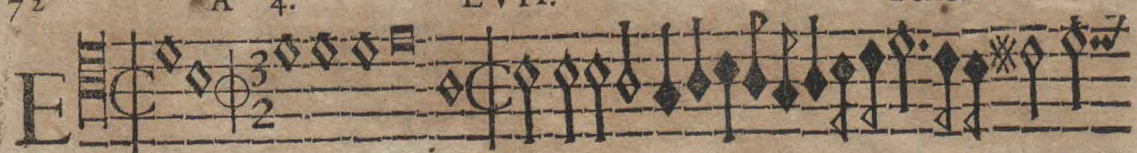 72 A 4. LVII.
E
3
2